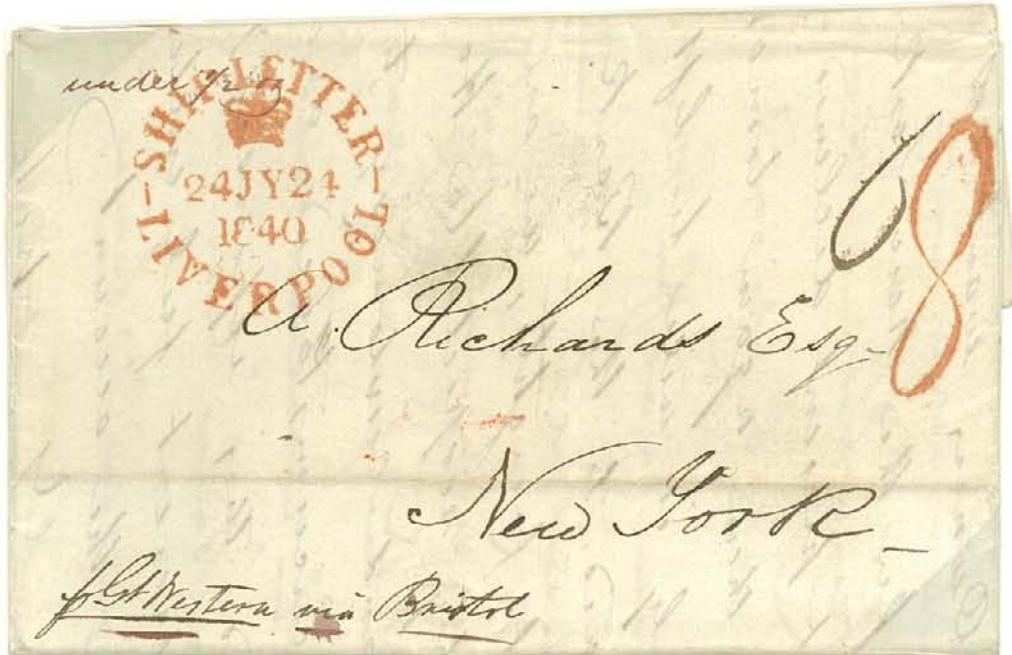 under 1/2 oz
SHIP LETTER
24JY24
1840
LIVERPOOL
6
8
A. Richards Esq
New York
pr Gt Western via Bristol